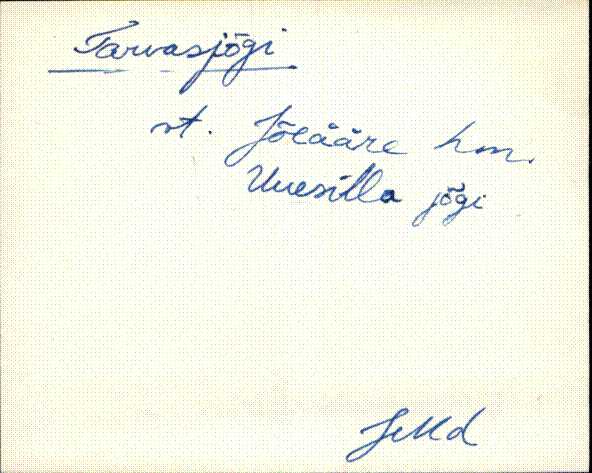 Tarvasjõgi
vt. Jõeääre hm.
Uuesilla jõgi
JMd